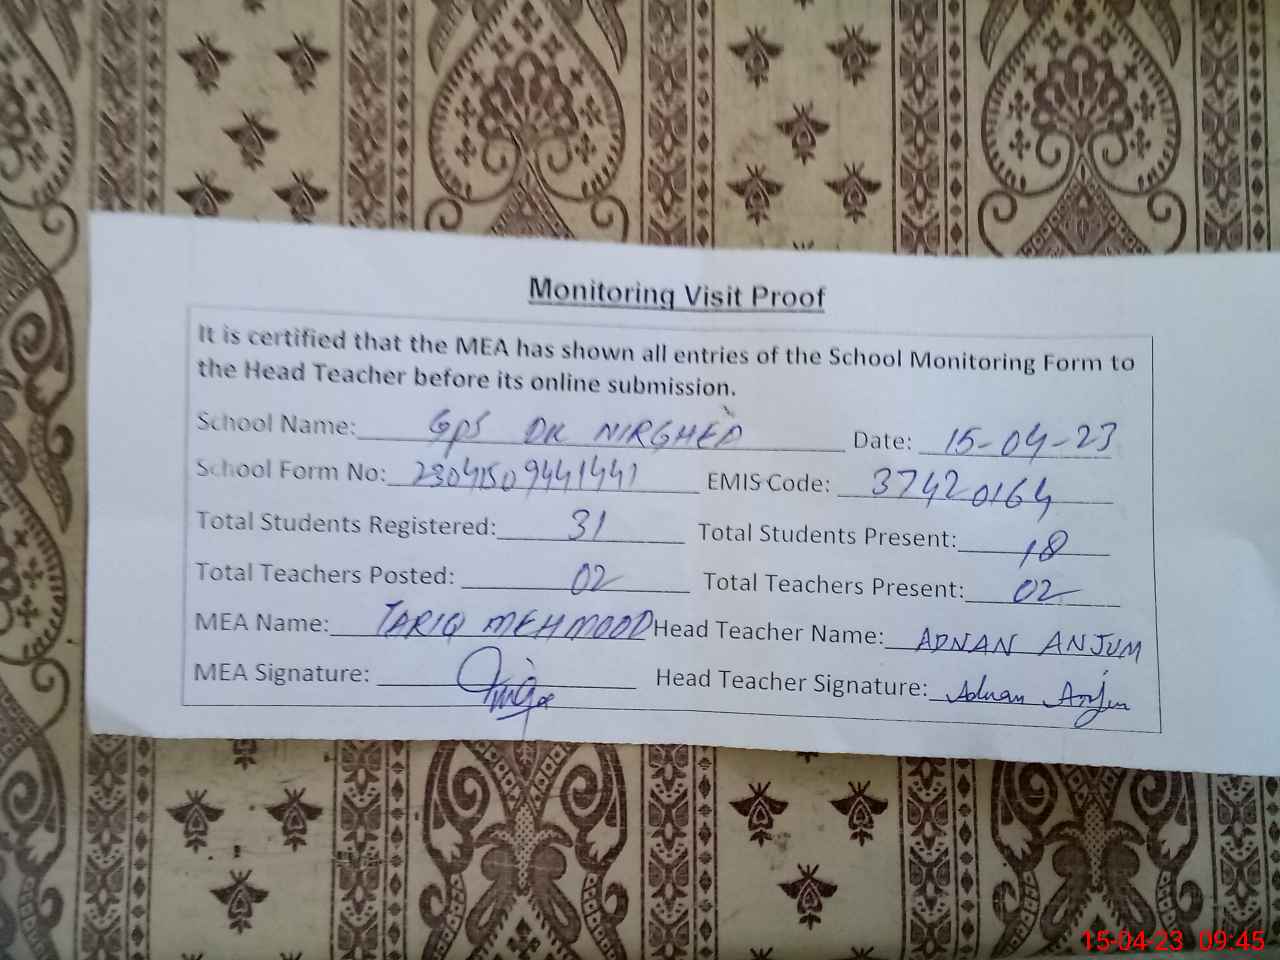 Monitoring Visit Proof
It is certified that the MEA has shown all entries of the School Monitoring Form to
the Head Teacher before its online submission.
School Name: GPS DK NIRGHED Date: 15-04-23
School Form No: 23041509441441 EMIS Code: 37420164
Total Students Registered: 31 Total Students Present: 18
Total Teachers Posted: 02 Total Teachers Present: 02
MEA Name: TARIQ MEHMOOD Head Teacher Name: ADNAN ANJUM
MEA Signature: Head Teacher Signature: Adnan Anjum
15-04-23 09:45